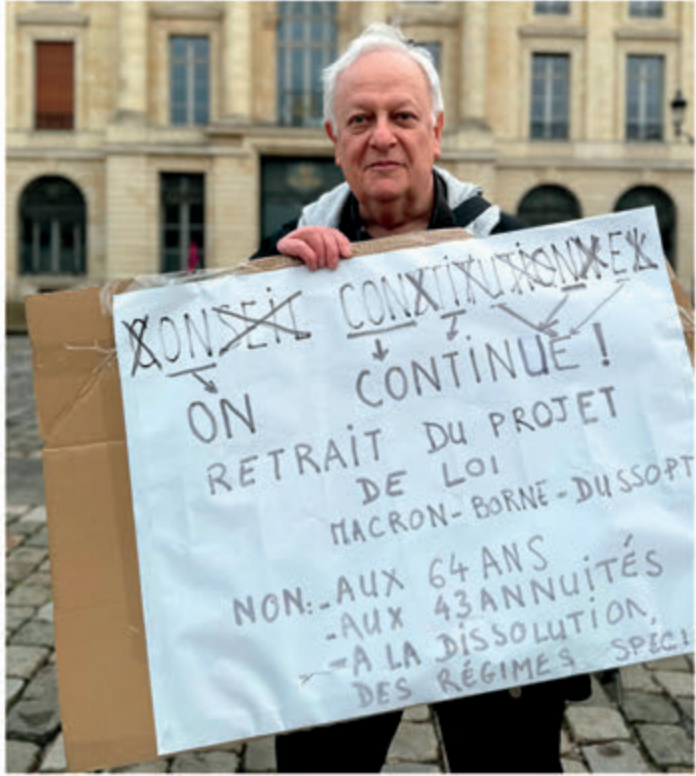 CONSEIL CONSTITUTIONNEL
ON CONTINUE !
RETRAIT DU PROJET
DE LOI
MACRON-BORNE-DUSSOPT
NON: - AUX 64 ANS
- AUX 43 ANNUITÉS
- A LA DISSOLUTION
DES RÉGIMES SPÉCI